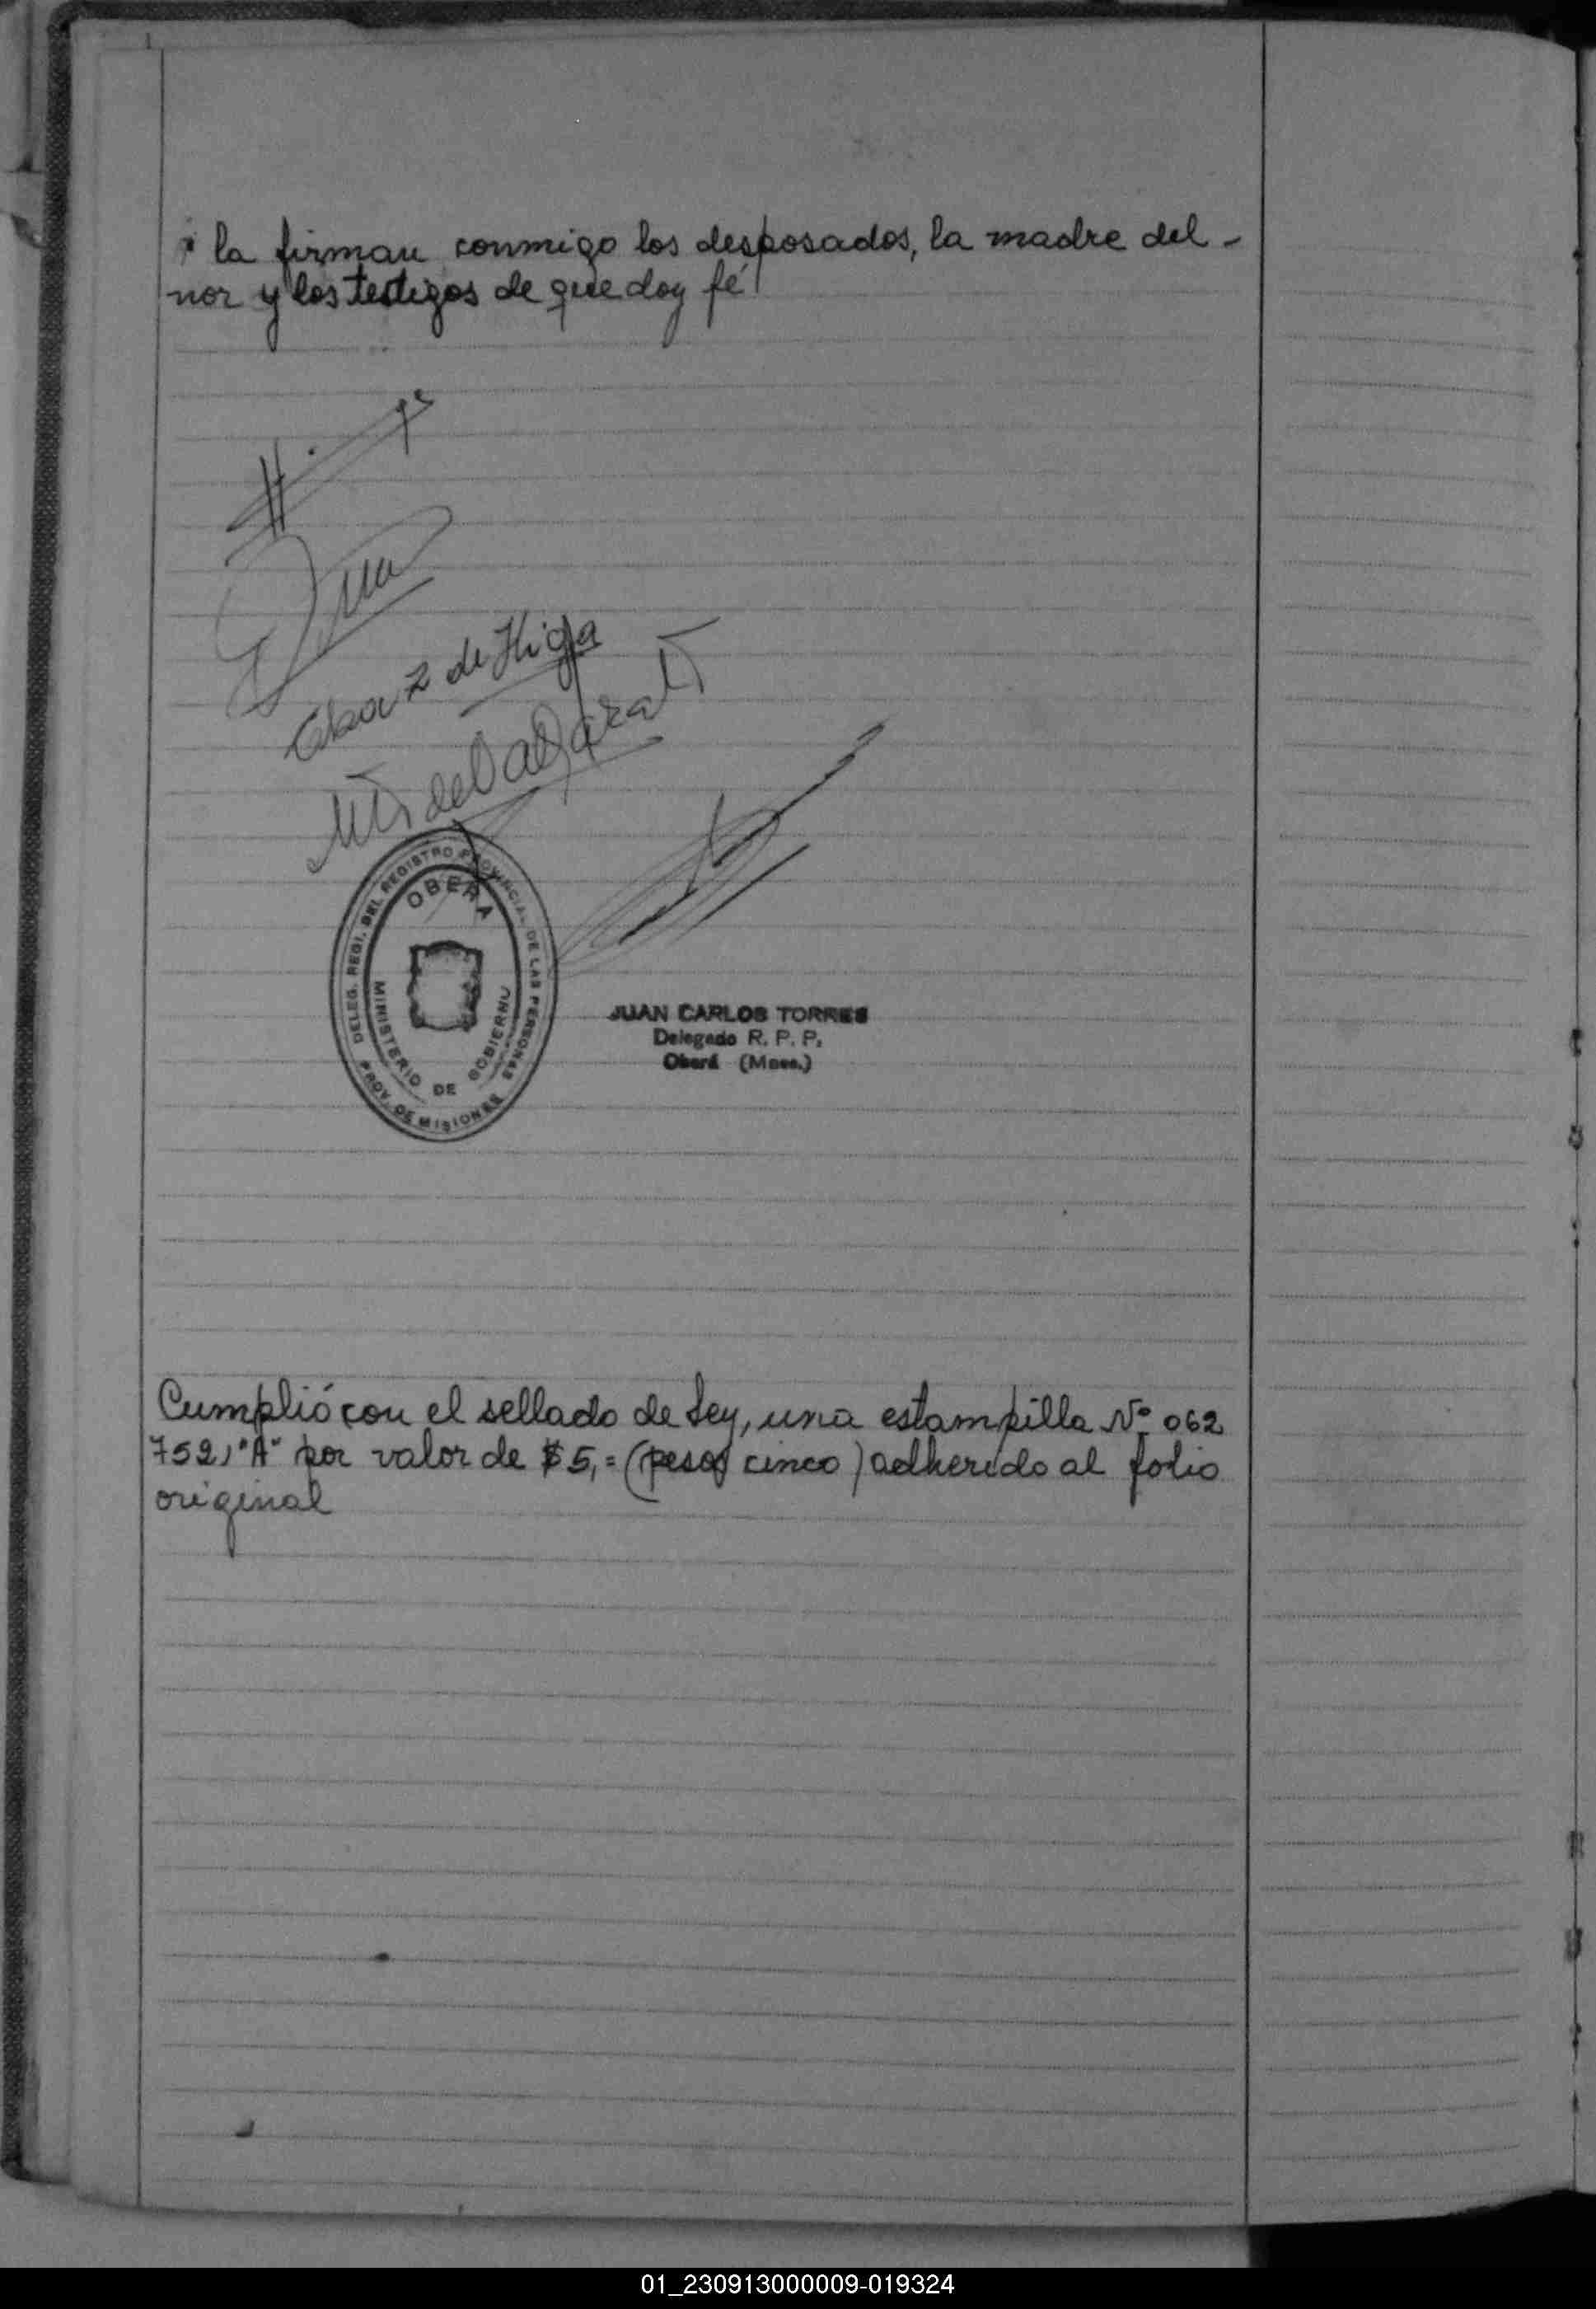 la firman conmigo los desposados, la madre del -
nor y los testigos de que doy fé
de Higa
DELEG. REGI. DEL REGISTRO PROVINCIAL DE LAS PERSONAS
OBERA
MINISTERIO DE GOBIERNO
PROV. DE MISIONES
JUAN CARLOS TORRES
Delegado R. P. P.
Oberá (Mnes.)
Cumplió con el sellado de Ley, una estampilla Nº 062
752, "A" por valor de $ 5,= (pesos cinco) adherido al folio
original
01_230913000009-019324